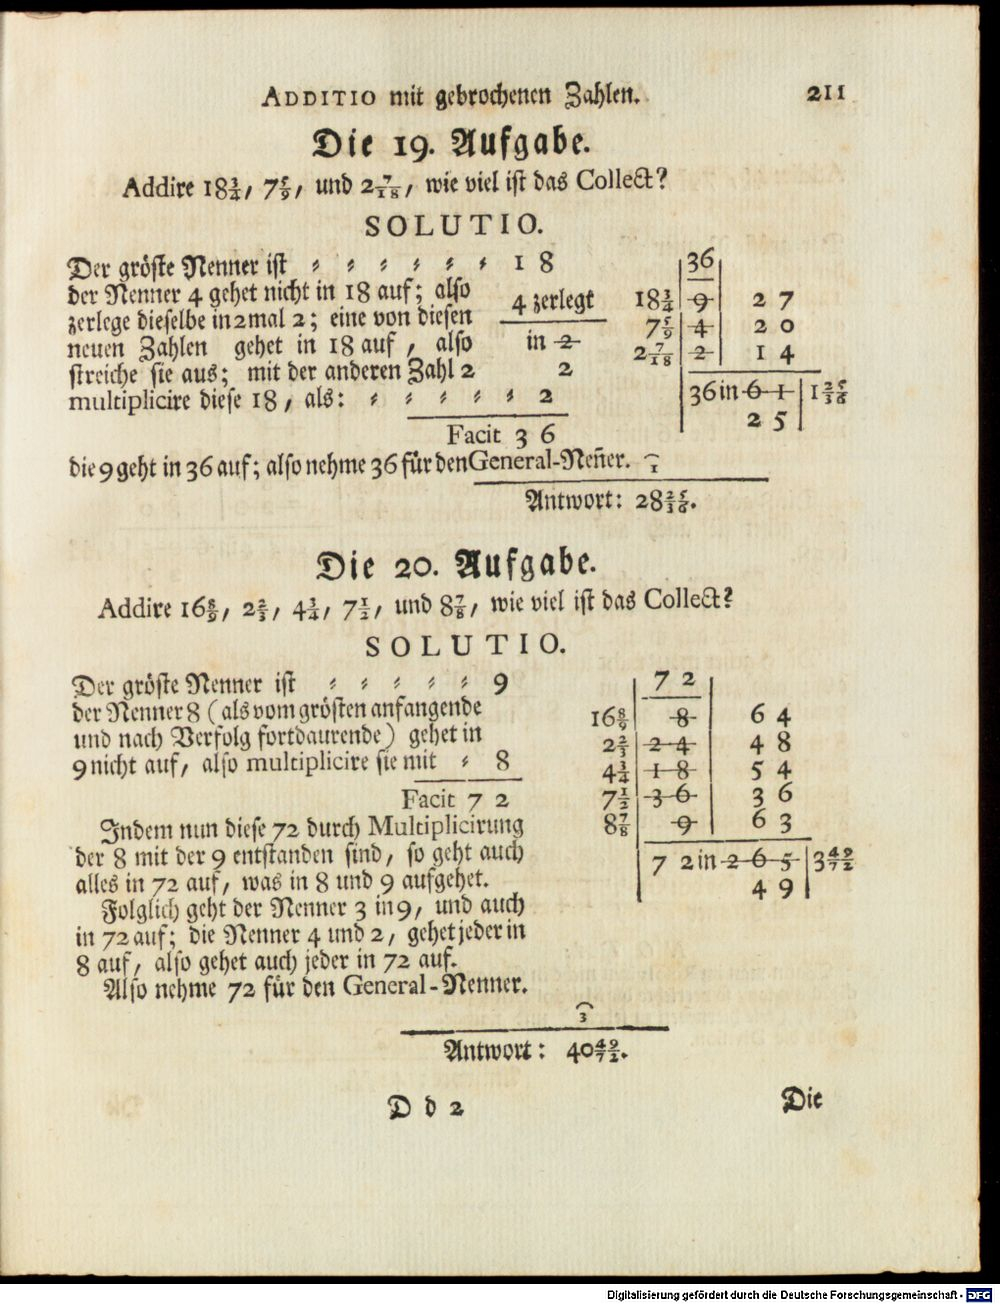 ADDITIO mit gebrochenen Zahlen. 211
Die 19. Aufgabe.
Addire 18 3/4, 7 5/9, und 2 7/18, wie viel ist das Collect?
SOLUTIO.
Der gröste Nenner ist 18
der Nenner 4 gehet nicht in 18 auf; also
zerlege dieselbe in 2 mal 2; eine von diesen
neuen Zahlen gehet in 18 auf, also
streiche sie aus; mit der anderen Zahl 2
multiplicire diese 18, als: 2
4 zerlegt
in 2
2
Facit 36
36
18 3/4 9 27
7 5/9 4 20
2 7/18 2 14
36 in 61 1 25/36
25
die 9 geht in 36 auf; also nehme 36 für den General-Neñer. 1
Antwort: 28 25/36.
Die 20. Aufgabe.
Addire 16 8/9, 2 2/3, 4 3/4, 7 1/2, und 8 7/8, wie viel ist das Collect?
SOLUTIO.
Der gröste Nenner ist 9
der Nenner 8 (als vom grösten anfangende
und nach Verfolg fortdaurende) gehet in
9 nicht auf, also multiplicire sie mit 8
Facit 72
Indem nun diese 72 durch Multiplicirung
der 8 mit der 9 entstanden sind, so geht auch
alles in 72 auf, was in 8 und 9 aufgehet.
Folglich geht der Nenner 3 in 9, und auch
in 72 auf; die Nenner 4 und 2, gehet jeder in
8 auf, also gehet auch jeder in 72 auf.
Also nehme 72 für den General-Nenner.
72
16 8/9 8 64
2 2/3 24 48
4 3/4 18 54
7 1/2 36 36
8 7/8 9 63
72 in 265 3 49/72
49
3
Antwort: 40 49/72.
Dd 2 Die
Digitalisierung gefördert durch die Deutsche Forschungsgemeinschaft - DFG